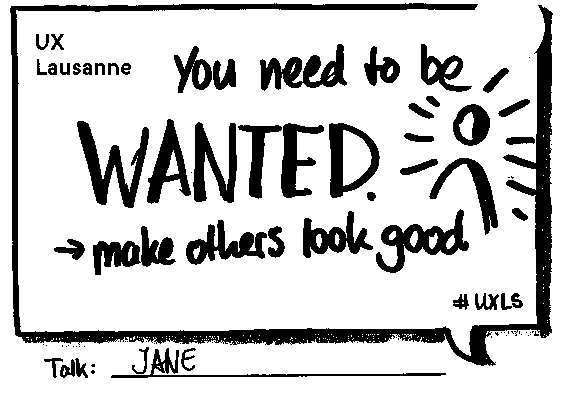 UX
Lausanne
You need to be
WANTED.
→ make others look good.
#UXLS
Talk: JANE